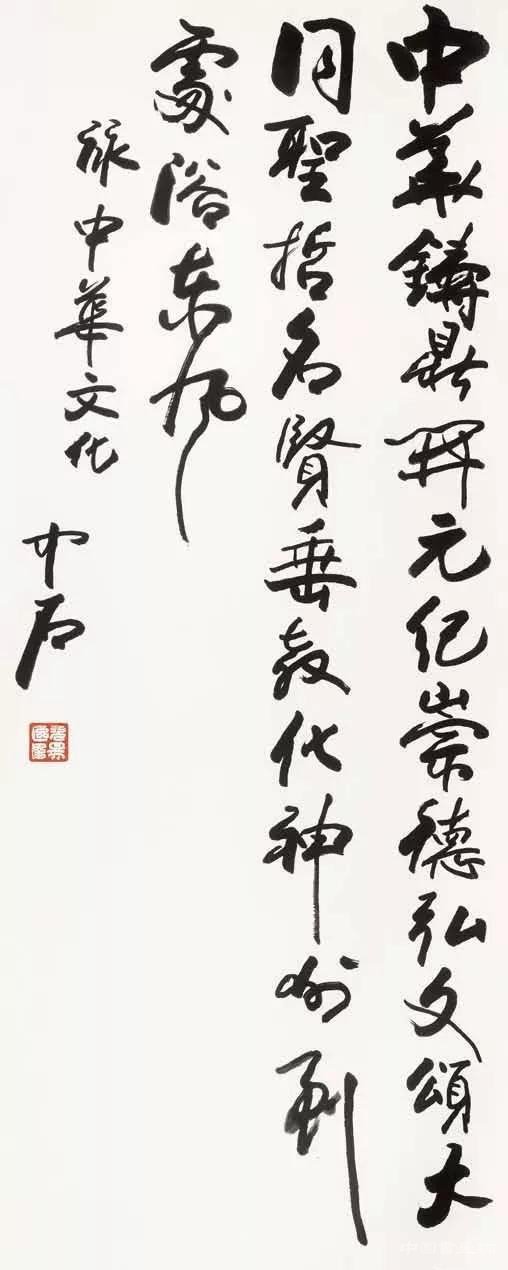 中華鑄鼎開元紀崇德弘文頌大
同聖哲名賢垂教化神州到
處浴東風
詠中華文化
中石